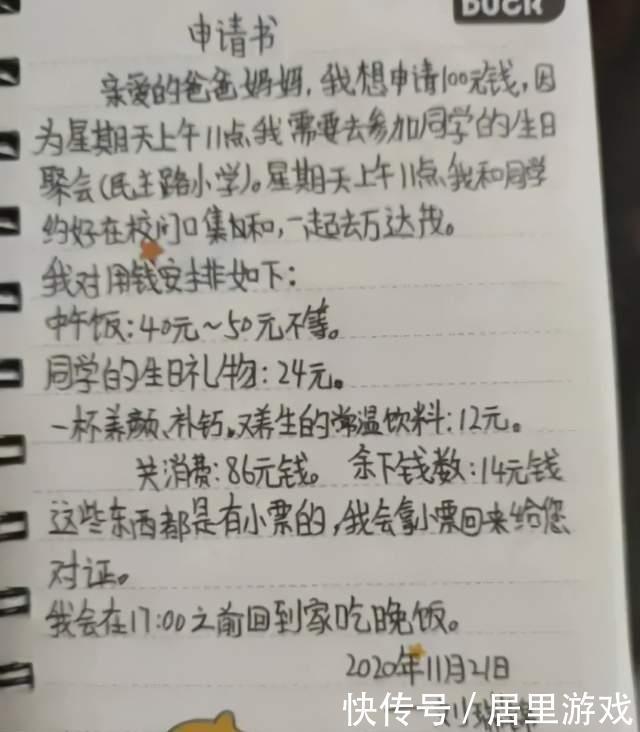 DUCK
申请书
亲爱的爸爸妈妈,我想申请100元钱,因
为星期天上午11点我需要去参加同学的生日
聚会(民主路小学)。星期天上午11点我和同学
约好在校门口集和,一起去万达找。
我对用钱安排如下:
中午饭:40元~50元不等。
同学的生日礼物:24元。
一杯养颜、补钙。又养生的常温饮料:12元。
共消费:86元钱。 余下钱数:14元钱
这些东西都是有小票的,我会拿小票回来给您
对证。
我会在17:00之前回到家吃晚饭。
2020年11月21日
快传号/居里游戏